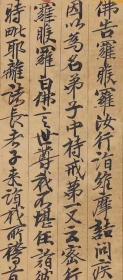 佛告羅睺羅汝行詣維摩詰問疾
羅睺羅白佛言世尊我不堪任詣彼
因以為名弟子中持戒第一又云密行
時毗耶離諸長者子來詣我所稽首